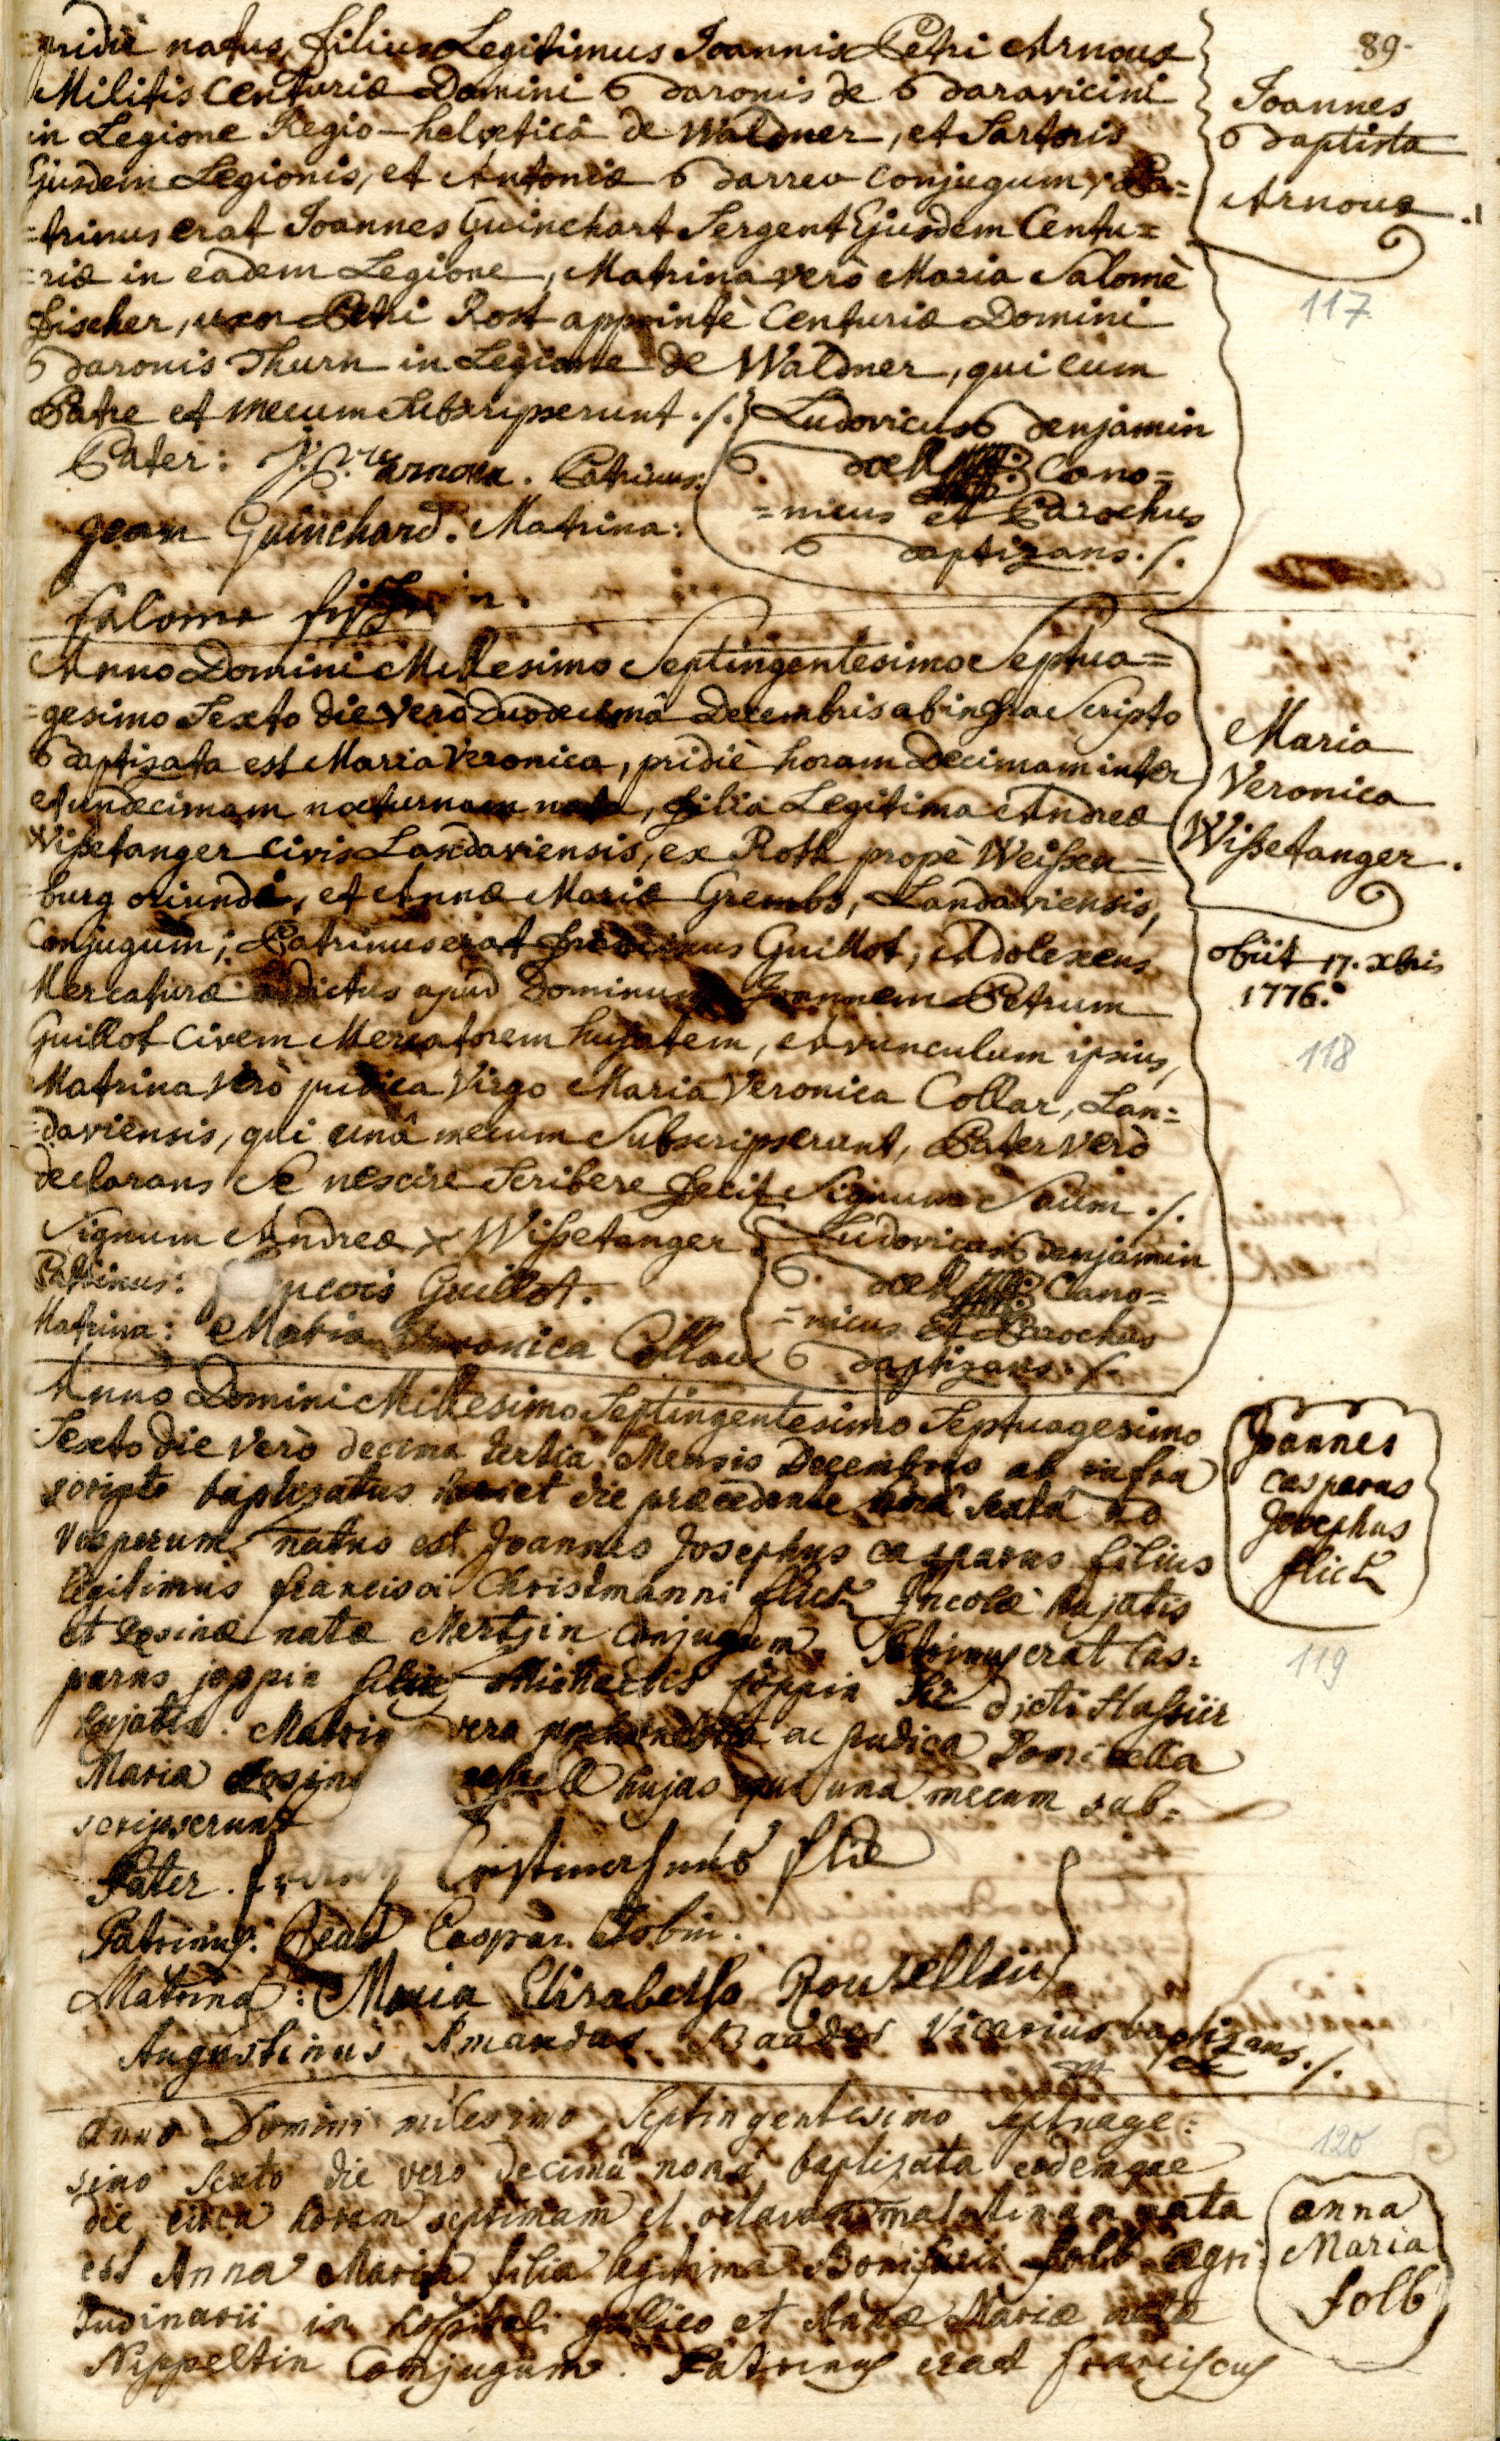 89.
pridiè natus, filius Legitimus Joannis Petri Arnoux
Militis Centuriæ Domini Baronis de Baravicini
in Legione Regio-helveticâ de Waldner, et Sartoris
Ejusdem Legionis, et Antoniæ Barreu Conjugum, Pa=
=trinus erat Joannes Guinchart Sergent Ejusdem Centu=
=riæ in eadem Legione, Matrina verò Maria Salomè
fischer, uxor Petri Rost appointè Centuriæ Domini
Baronis Thurn in Legione de Waldner, qui cum
Patre et mecum Subscripserunt ./.
Joannes
Baptista
Arnoux.
117
Ludovicus Benjamin
Cano=
=nicus et Parochus
Baptizans ./.
Pater: arnoux. Patrinus:
Jean Guinchard. Matrina:
Salome
Anno Domini Millesimo Septingentesimo Septua=
=gesimo Sexto die verò duodecimâ Decembris ab infra Scripto
Baptizata est Maria Veronica, pridiè horam decimam inter
et undecimam nocturnam nata, filia Legitima Andreæ
Wißetanger Civis Landaviensis, ex Roth propè Weißen=
=burg oriundi, et Annæ Mariæ Grembs, Landaviensis,
Conjugum; Patrinus erat franciscus Guillot, Adolescens
Mercaturæ addictus apud Dominum Joannem Petrum
Guillot Civem Mercatorem hujatem, Avunculum ipsius,
Matrina verò pudica Virgo Maria Veronica Collar, Lan=
=daviensis, qui unâ mecum Subscripserunt, Pater verò
declarans Se nescire Scribere fecit Signum Suum ./.
Maria
Veronica
Wißetanger.
obiit 17. xbris
1776.
118
Signum Andreæ x Wißetanger.
Patrinus: ncois Guillot.
Matrina: Maria Veronica Collar
Ludovicus Benjamin
Cano=
=nicus et Parochus
Baptizans ./.
Anno Domini Millesimo Septingentesimo Septuagesimo
Sexto die verò decima tertia Mensis Decembris ab infra
scripto baptizatus et die præcedente horâ sextâ ad
Vesperum natus est Joannes Josephus casparus filius
legitimus francisci Christmanni flick Incolæ hujatis
et Rosinæ natæ Mertzin Conjugum. Patrinus erat Cas=
parus joppin Michaelis joppin dicti
hujatis. Matrina vero ac pudica Domicella
Maria hujas qui una mecum sub=
scripserunt
Joannes
casparus
Josephus
flick
119
Pater. flick
Patrinus: Jean Caspar Tobin.
Matrina: Maria Elisabetha Rousellin
Augustinus Amandus Baader Vicarius baptizans ./.
anno Domini milesimo Septingentesimo septuage=
simo Sexto die vero decimâ nonâ, baptizata eodemque
die circa horam septimam et octavam matutinam nata
est Anna Maria filia legitima Bonifacii folb Ægri
tudinarii in hospitali gallico et Annæ Mariæ natæ
Nippeltin Conjugum. Patrinus erat franciscus
120
anna
Maria
folb